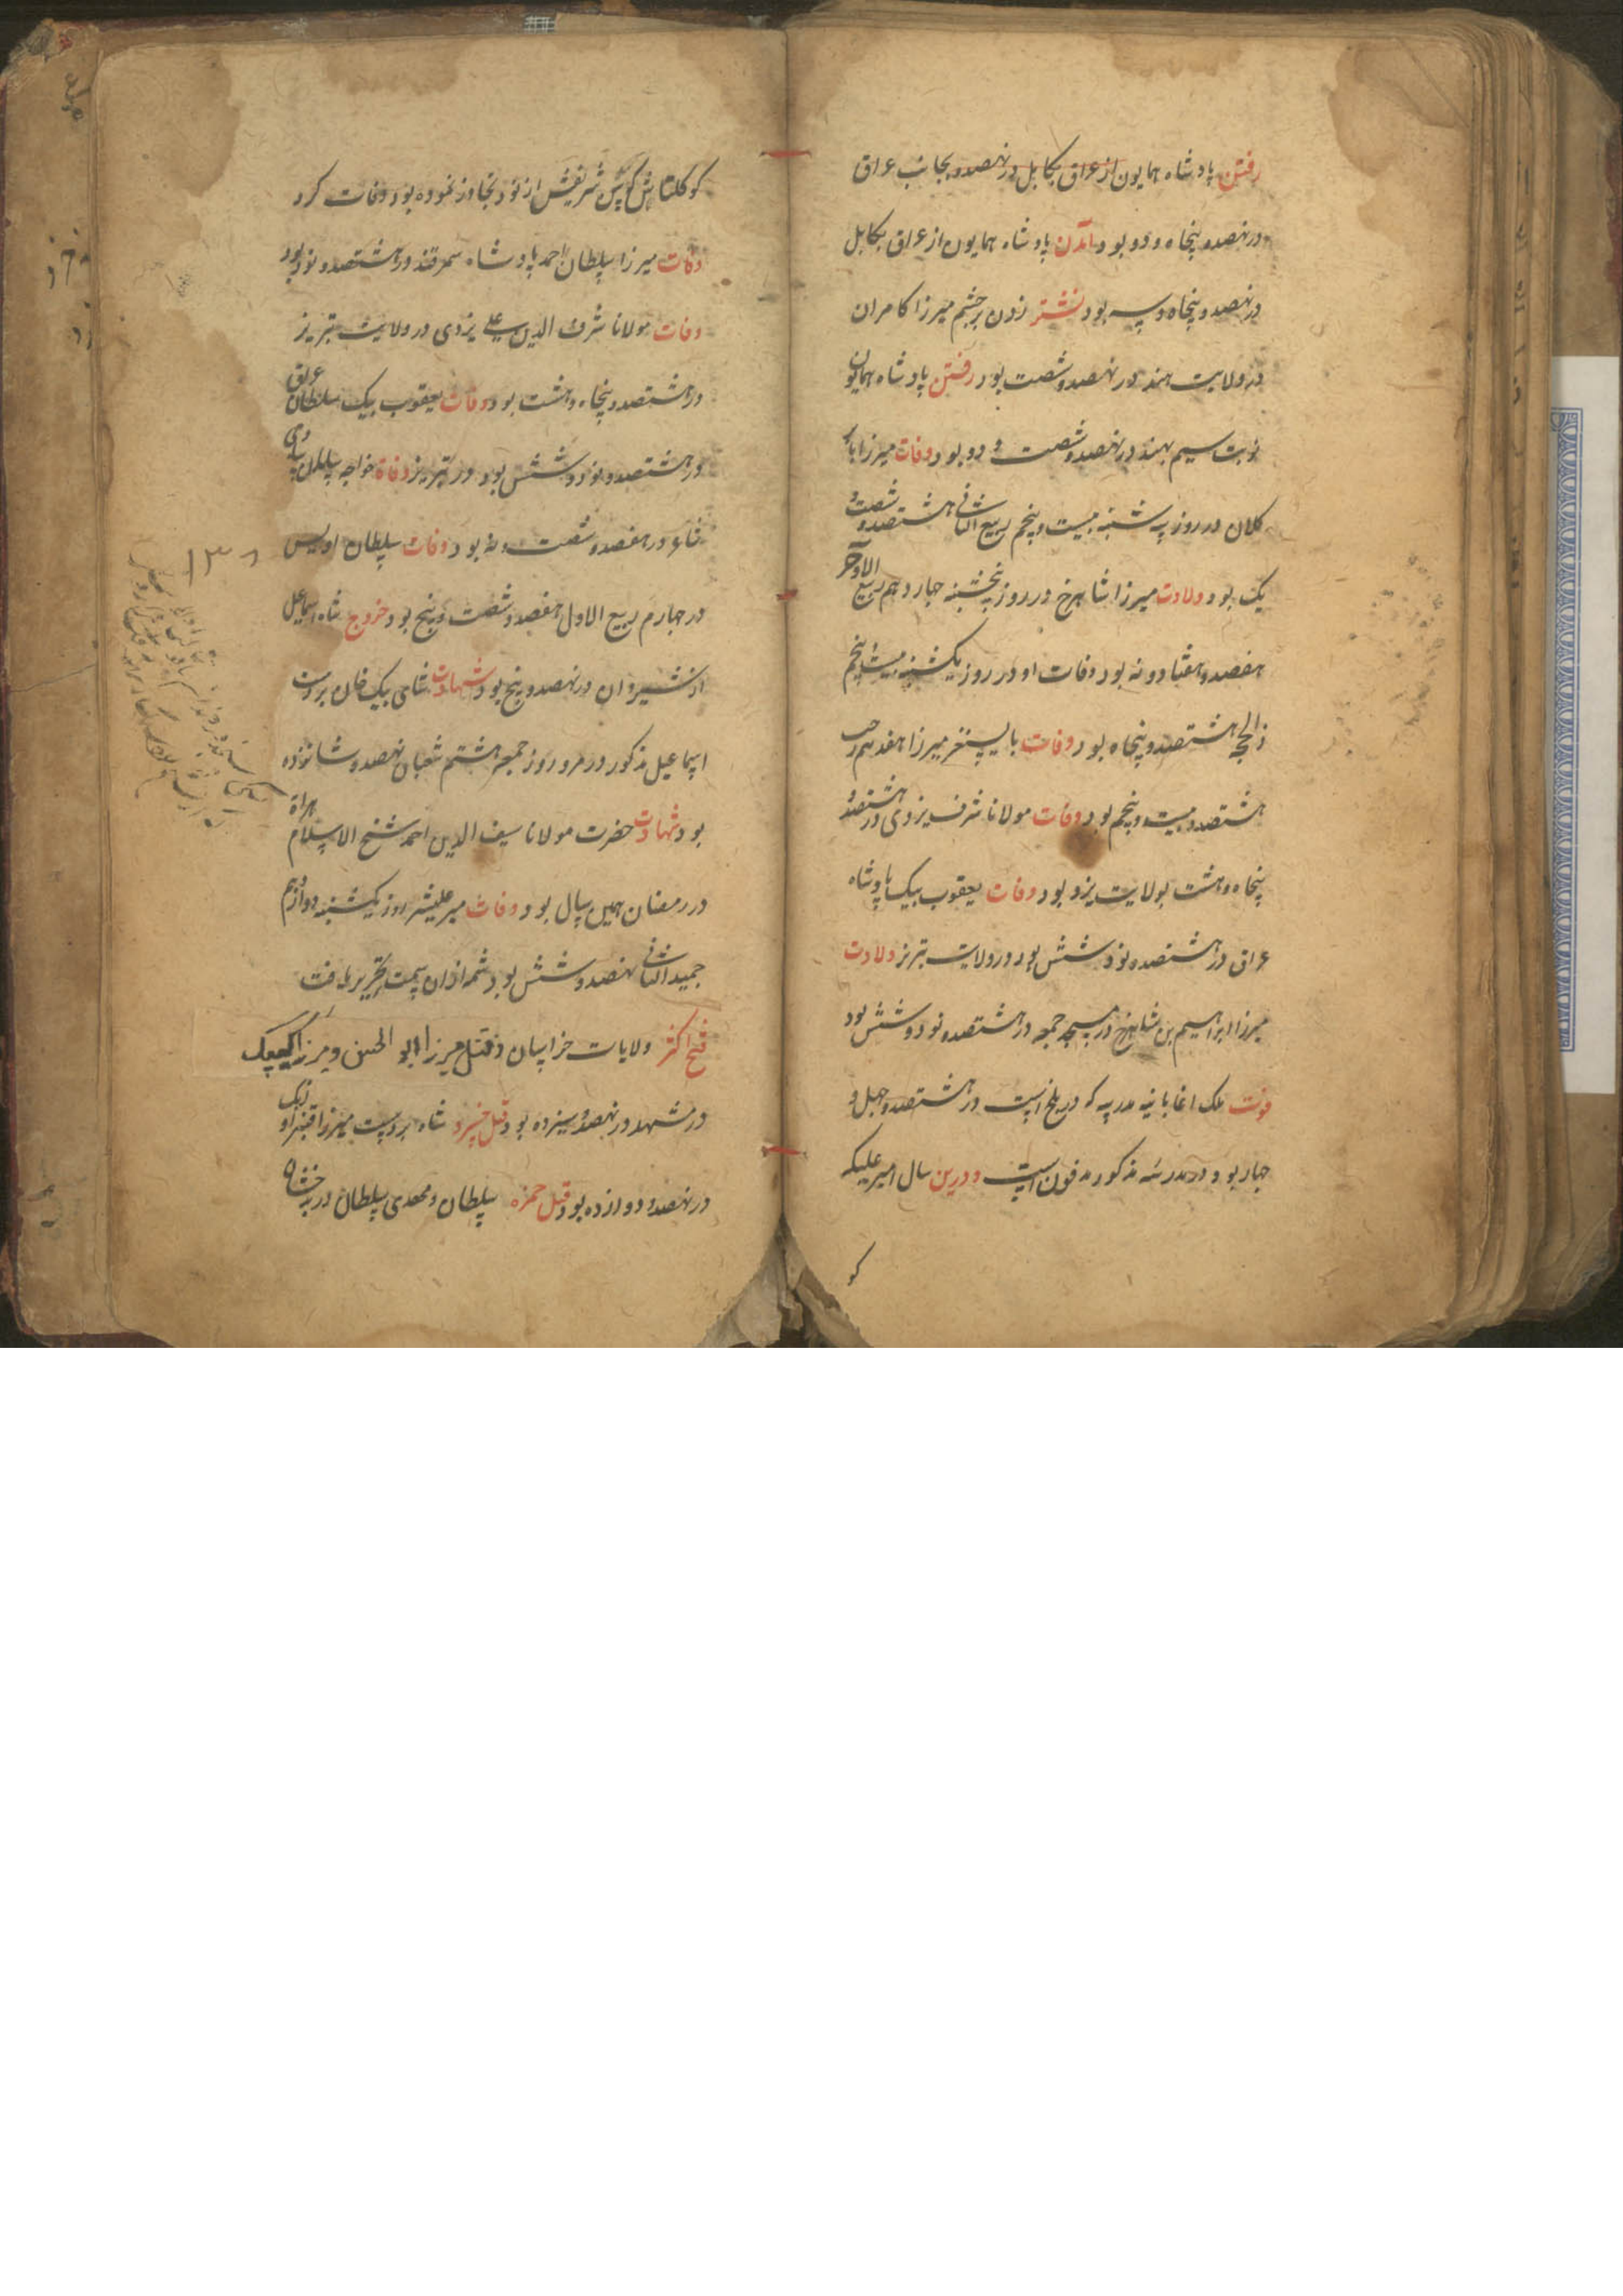 رفتن پادشاه همایون از عراق بکابل در نهصد و بجانب عراق
در نهصد و پنجاه و دو بود و آمدن پادشاه همایون از عراق بکابل
در نهصد و پنجاه و سه بود نشتر زدن بر چشم میرزا کامران
در ولایت هند در نهصد و شصت بود رفتن پادشاه همایون
نوبت سیم بهند در نهصد و شصت و دو بود وفات میرزا بابر
کلان در روز سه شنبه بیست و پنجم ربیع الثانی هشتصد و شصت و
یک بود ولادت میرزا شاهرخ در روز پنجشنبه چهاردهم ربیع الآخر
هفصد و هفتاد و نه بود وفات او در روز یکشنبه بیست پنجم
ذالحجه هشتصد و پنجاه بود وفات بایسنغر میرزا هفدهم رجب
هشتصد و بیست و پنجم بود وفات مولانا شرف یزدی در هشتصد و
پنجاه و هشت بولایت یزد بود وفات یعقوب بیک پادشاه
عراق در هشتصد و نود شش بود در ولایت تبریز ولادت
میرزا ابراهیم بن شاهرخ در مسجد جمعه در هشتصد و نود و شش بود
فوت ملک اغا بانیه مدرسه که در بلخ است در هشتصد و چهل و
چهار بود و در مدرسه مذکور مدفون است و درین سال امیر علیکه
کو
کوکلتاش که سن شریفش از نود تجاوز نموده بود وفات کرد
وفات میرزا سلطان احمد پادشاه سمرقند در هشتصد و نود بود
وفات مولانا شرف الدین علی یزدی در ولایت تبریز
در هشتصد و پنجاه و هشت بود وفات یعقوب بیک سلطان عراق
در هشتصد و نود و شش بود در تبریز وفاة خواجه سلمان ساوجی
شاعر در هفصد و شصت و نه بود وفات سلطان اویس
در چهارم ربیع الاول هفصد و شصت و پنج بود خروج شاه اسماعیل
از شیروان در نهصد و پنج بود شهادت شای بیک خان بر دست
اسماعیل مذکور در مرو روز جمعه هشتم شعبان نهصد و شانزده
بود شهادت حضرت مولانا سیف الدین احمد شیخ الاسلام هراة
در رمضان همین سال بود وفات میر علیشر روز یکشنبه دوازدهم
جمید الثانی نهصد و شش بود شمه ازان سمت تحریر یافت
فتح اکثر ولایات خراسان و قتل میرزا ابو الحسن و میرزا کیپک
در مشهد در نهصد و سیزده بود قتل خسرو شاه بر دست میرزا قنبر اوزبک
در نهصد و دوازده بود قتل حمزه سلطان و مهدی سلطان در بدخشان